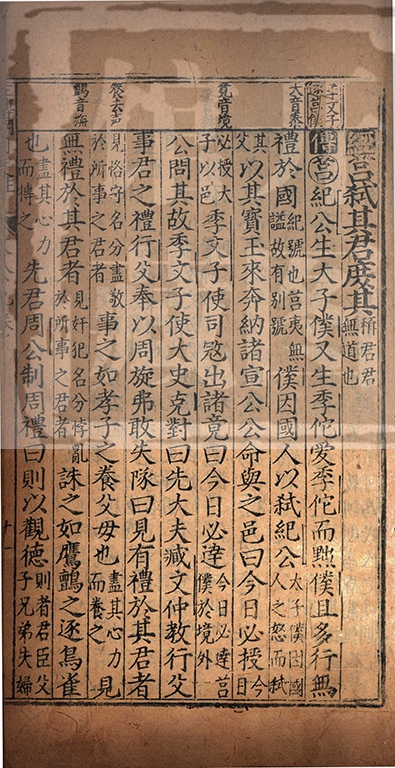 季文子逐莒僕
大音泰
竟音境
養去聲
經莒弑其君庶其稱君君無道也
傳莒紀公生大子僕又生季佗愛季佗而黜僕且多行無
禮於國紀號也莒夷無謚故有别號僕因國人以弑紀公太子僕因國人之怒而弑
其父以其寶玉來奔納諸宣公公命與之邑曰今日必授今日
必授大子以邑季文子使司寇出諸竟曰今日必達今日必達莒僕於境外
公問其故季文子使大史克對曰先大夫臧文仲教行父
事君之禮行父奉以周旋弗敢失隊曰見有禮於其君者
見恪守名分盡敬於所事之君者事之如孝子之養父母也盡其心力而養之見
無禮於其君者見奸犯名分悖亂於所事之君者誅之如鷹鸇之逐鳥雀
也盡其心力而搏之先君周公制周禮曰則以觀德則者君臣父子兄弟夫婦